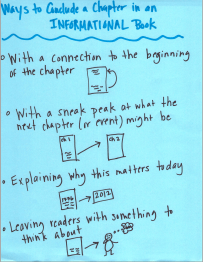 Ways to Conclude a Chapter in an
INFORMATIONAL Book
• With a connection to the beginning
of the chapter
• With a sneak peak at what the
next chapter (or event) might be
Ch.1
Ch.2
• Explaining why this matters today
1996
2012
• Leaving readers with something to
think about